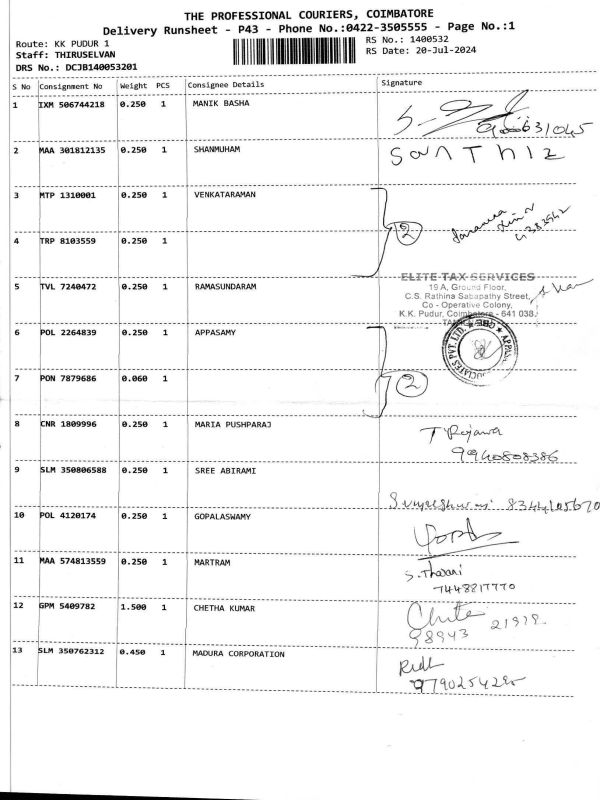 THE PROFESSIONAL COURIERS, COIMBATORE
Delivery Runsheet - P43 - Phone No.:0422-3505555 - Page No.:1
Route: KK PUDUR 1
RS No.: 1400532
Staff: THIRUSELVAN
RS Date: 20-Jul-2024
DRS No.: DCJB140053201
S No Consignment No Weight PCS Consignee Details Signature
1 IXM 506744218 0.250 1 MANIK BASHA
2 MAA 301812135 0.250 1 SHANMUHAM
3 MTP 1310001 0.250 1 VENKATARAMAN
2
4 TRP 8103559 0.250 1
5 TVL 7240472 0.250 1 RAMASUNDARAM
ELITE TAX SERVICES
19 A, Ground Floor,
C.S. Rathina Sabapathy Street,
Co - Operative Colony,
K.K. Pudur, Coimbatore - 641 038.
6 POL 2264839 0.250 1 APPASAMY
7 PON 7879686 0.060 1
2
8 CNR 1809996 0.250 1 MARIA PUSHPARAJ
9940808386
9 SLM 350806588 0.250 1 SREE ABIRAMI
10 POL 4120174 0.250 1 GOPALASWAMY
11 MAA 574813559 0.250 1 MARTRAM
S. Tharani
7448817770
12 GPM 5409782 1.500 1 CHETHA KUMAR
98943 21979
13 SLM 350762312 0.450 1 MADURA CORPORATION